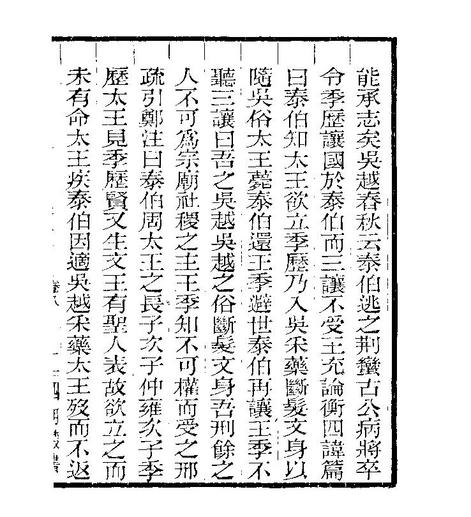 能承志矣吳越春秋云泰伯逃之荆蠻古公病將卒
令季歷讓國於泰伯而三讓不受王充論衡四諱篇
曰泰伯知太王欲立季歷乃入吳采藥斷髮文身以
隨吳俗太王薨泰伯還王季避世泰伯再讓王季不
聽三讓曰吾之吳越吳越之俗斷髮文身吾刑餘之
人不可爲宗廟社稷之主王季知不可權而受之邢
疏引鄭注曰泰伯周太王之長子次子仲雍次子季
歷太王見季歷賢又生文王有聖人表故欲立之而
未有命太王疾泰伯因適吳越采藥太王歿而不返
卷八
四明叢書